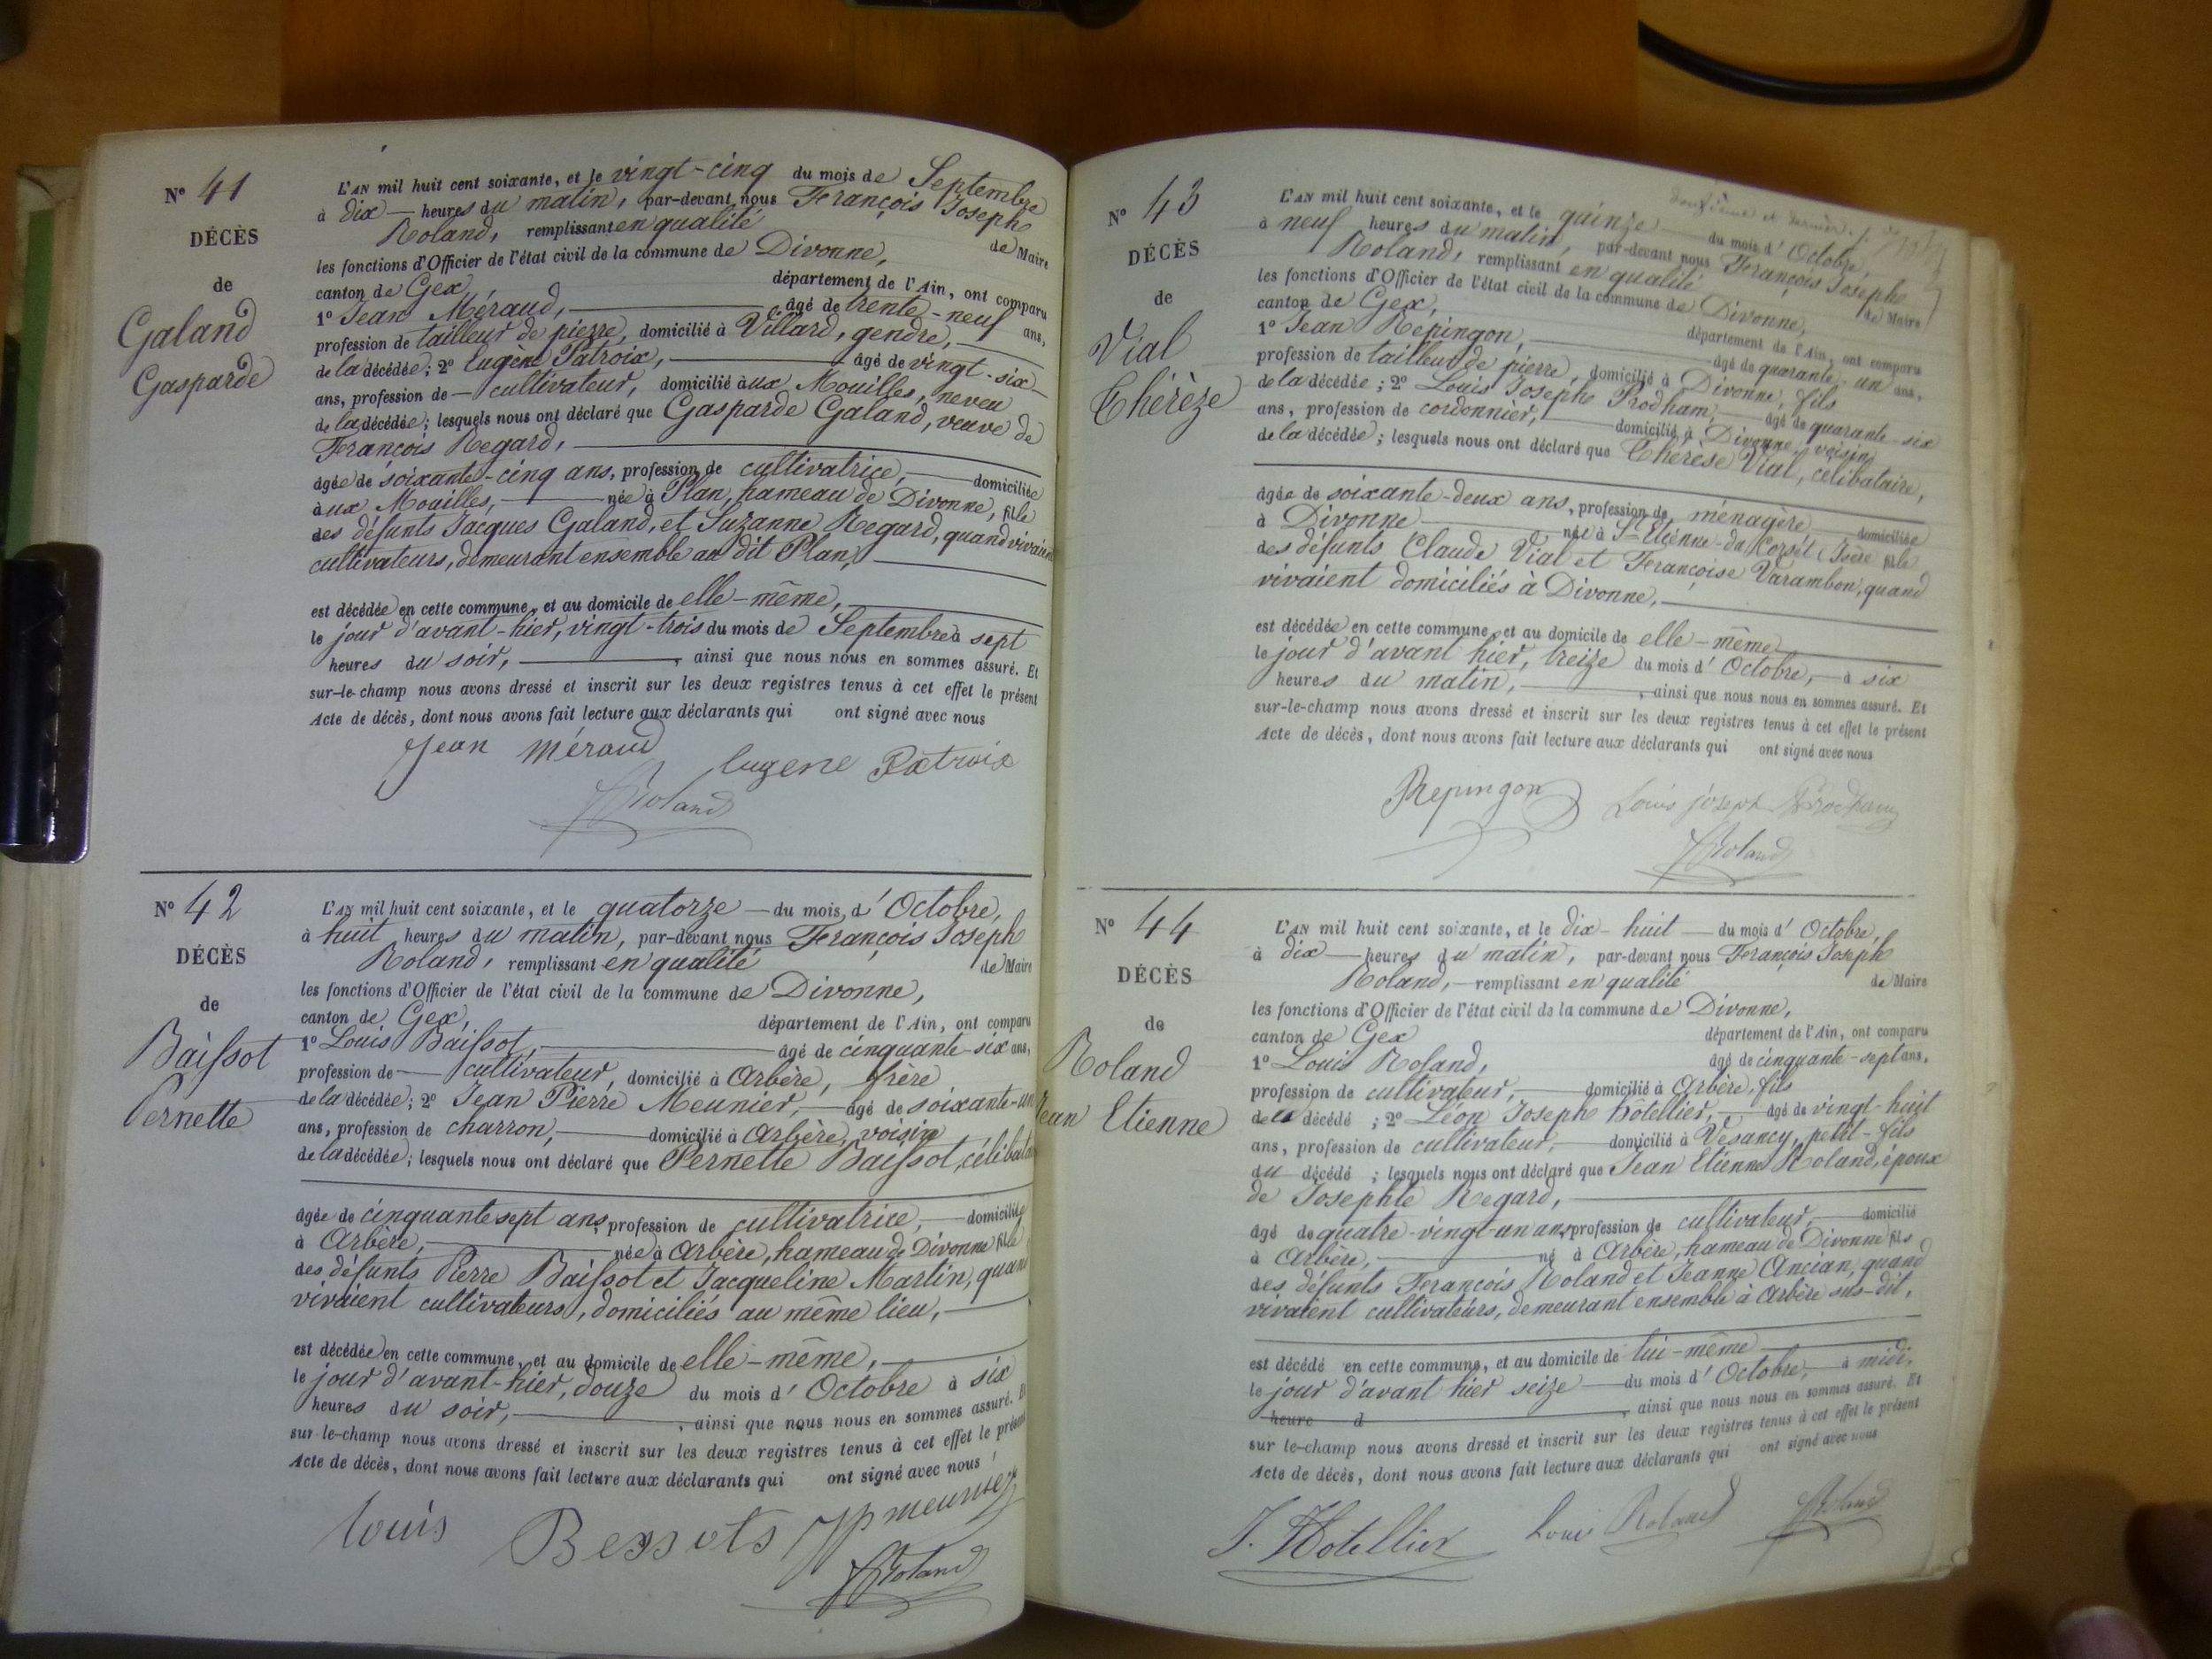 N° 41
DÉCÈS
de
Galand
Gasparde
L'AN mil huit cent soixante, et le vingt-cinq du mois de Septembre
à dix heures du matin, par-devant nous François Joseph
Roland, remplissant en qualité de Maire
les fonctions d'Officier de l'état civil de la commune de Divonne,
canton de Gex, département de l'Ain, ont comparu
1° Jean Méraud, âgé de trente-neuf ans,
profession de tailleur de pierre, domicilié à Villard, gendre,
de la décédée; 2° Eugène Patroix, âgé de vingt-six
ans, profession de cultivateur, domicilié aux Mouilles, neveu
de la décédée; lesquels nous ont déclaré que Gasparde Galand, veuve de
François Regard,
âgée de soixante-cinq ans, profession de cultivatrice, domiciliée
aux Mouilles, née à Plan, hameau de Divonne, fille
des défunts Jacques Galand, et Suzanne Regard, quand vivaient
cultivateurs, demeurant ensemble au dit Plan,
est décédée en cette commune, et au domicile de elle-même,
le jour d'avant-hier, vingt-trois du mois de Septembre à sept
heures du soir, , ainsi que nous nous en sommes assuré. Et
sur-le-champ nous avons dressé et inscrit sur les deux registres tenus à cet effet le présent
Acte de décès, dont nous avons fait lecture aux déclarants qui ont signé avec nous
Jean Méraud
Eugene Patroix
Roland
N° 42
DÉCÈS
de
Baissot
Pernette
L'AN mil huit cent soixante, et le quatorze du mois d'Octobre,
à huit heures du matin, par-devant nous François Joseph
Roland, remplissant en qualité de Maire
les fonctions d'Officier de l'état civil de la commune de Divonne,
canton de Gex, département de l'Ain, ont comparu
1° Louis Baissot, âgé de cinquante-six ans,
profession de cultivateur, domicilié à Arbère, frère
de la décédée; 2° Jean Pierre Meunier, âgé de soixante-un
ans, profession de charron, domicilié à Arbère, voisin
de la décédée; lesquels nous ont déclaré que Pernette Baissot,
âgée de cinquante sept ans, profession de cultivatrice, domiciliée
à Arbère, née à Arbère, hameau de Divonne fille
des défunts Pierre Baissot et Jacqueline Martin, quand
vivaient cultivateurs, domiciliés au même lieu,
est décédée en cette commune, et au domicile de elle-même,
le jour d'avant-hier, douze du mois d'Octobre à six
heures du soir, , ainsi que nous nous en sommes assuré. Et
sur-le-champ nous avons dressé et inscrit sur les deux registres tenus à cet effet le présent
Acte de décès, dont nous avons fait lecture aux déclarants qui ont signé avec nous
louis Bessots JP meunier
Roland
N° 43
DÉCÈS
de
Vial
Thérèze
L'AN mil huit cent soixante, et le quinze du mois d'Octobre,
à neuf heures du matin, par-devant nous François Joseph
Roland, remplissant en qualité de Maire
les fonctions d'Officier de l'état civil de la commune de Divonne,
canton de Gex, département de l'Ain, ont comparu
1° Jean Répingon, âgé de quarante-un ans,
profession de tailleur de pierre, domicilié à Divonne, fils
de la décédée; 2° Louis Joseph Prodham, âgé de quarante-six
ans, profession de cordonnier, domicilié à Divonne, voisin
de la décédée; lesquels nous ont déclaré que Thérèse Vial, célibataire,
âgée de soixante-deux ans, profession de ménagère domiciliée
à Divonne née à St Etienne Isère fille
des défunts Claude Vial et Françoise Varambon, quand
vivaient domiciliés à Divonne,
est décédée en cette commune, et au domicile de elle-même
le jour d'avant hier, treize du mois d'Octobre, à six
heures du matin, , ainsi que nous nous en sommes assuré. Et
sur-le-champ nous avons dressé et inscrit sur les deux registres tenus à cet effet le présent
Acte de décès, dont nous avons fait lecture aux déclarants qui ont signé avec nous
Repingon Louis joseph Prodham
Roland
N° 44
DÉCÈS
de
Roland
Jean Etienne
L'AN mil huit cent soixante, et le dix-huit du mois d'Octobre,
à dix heures du matin, par-devant nous François Joseph
Roland, remplissant en qualité de Maire
les fonctions d'Officier de l'état civil de la commune de Divonne,
canton de Gex département de l'Ain, ont comparu
1° Louis Roland, âgé de cinquante-sept ans,
profession de cultivateur, domicilié à Arbère, fils
de décédé; 2° Léon Joseph hotellier, âgé de vingt-huit
ans, profession de cultivateur, domicilié à Vesancy, petit-fils
du décédé; lesquels nous ont déclaré que Jean Etienne Roland, époux
de Josephte Regard,
âgé de quatre-vingt-un ans, profession de cultivateur, domicilié
à Arbère, né à Arbère, hameau de Divonne fils
des défunts François Roland et Jeanne Ancian, quand
vivaient cultivateurs, demeurant ensemble à Arbère sus-dit,
est décédé en cette commune, et au domicile de lui-même
le jour d'avant hier seize du mois d'Octobre, à midi,
heure d , ainsi que nous nous en sommes assuré. Et
sur le-champ nous avons dressé et inscrit sur les deux registres tenus à cet effet le présent
Acte de décès, dont nous avons fait lecture aux déclarants qui ont signé avec nous
J. Hotellier Louis Roland Roland